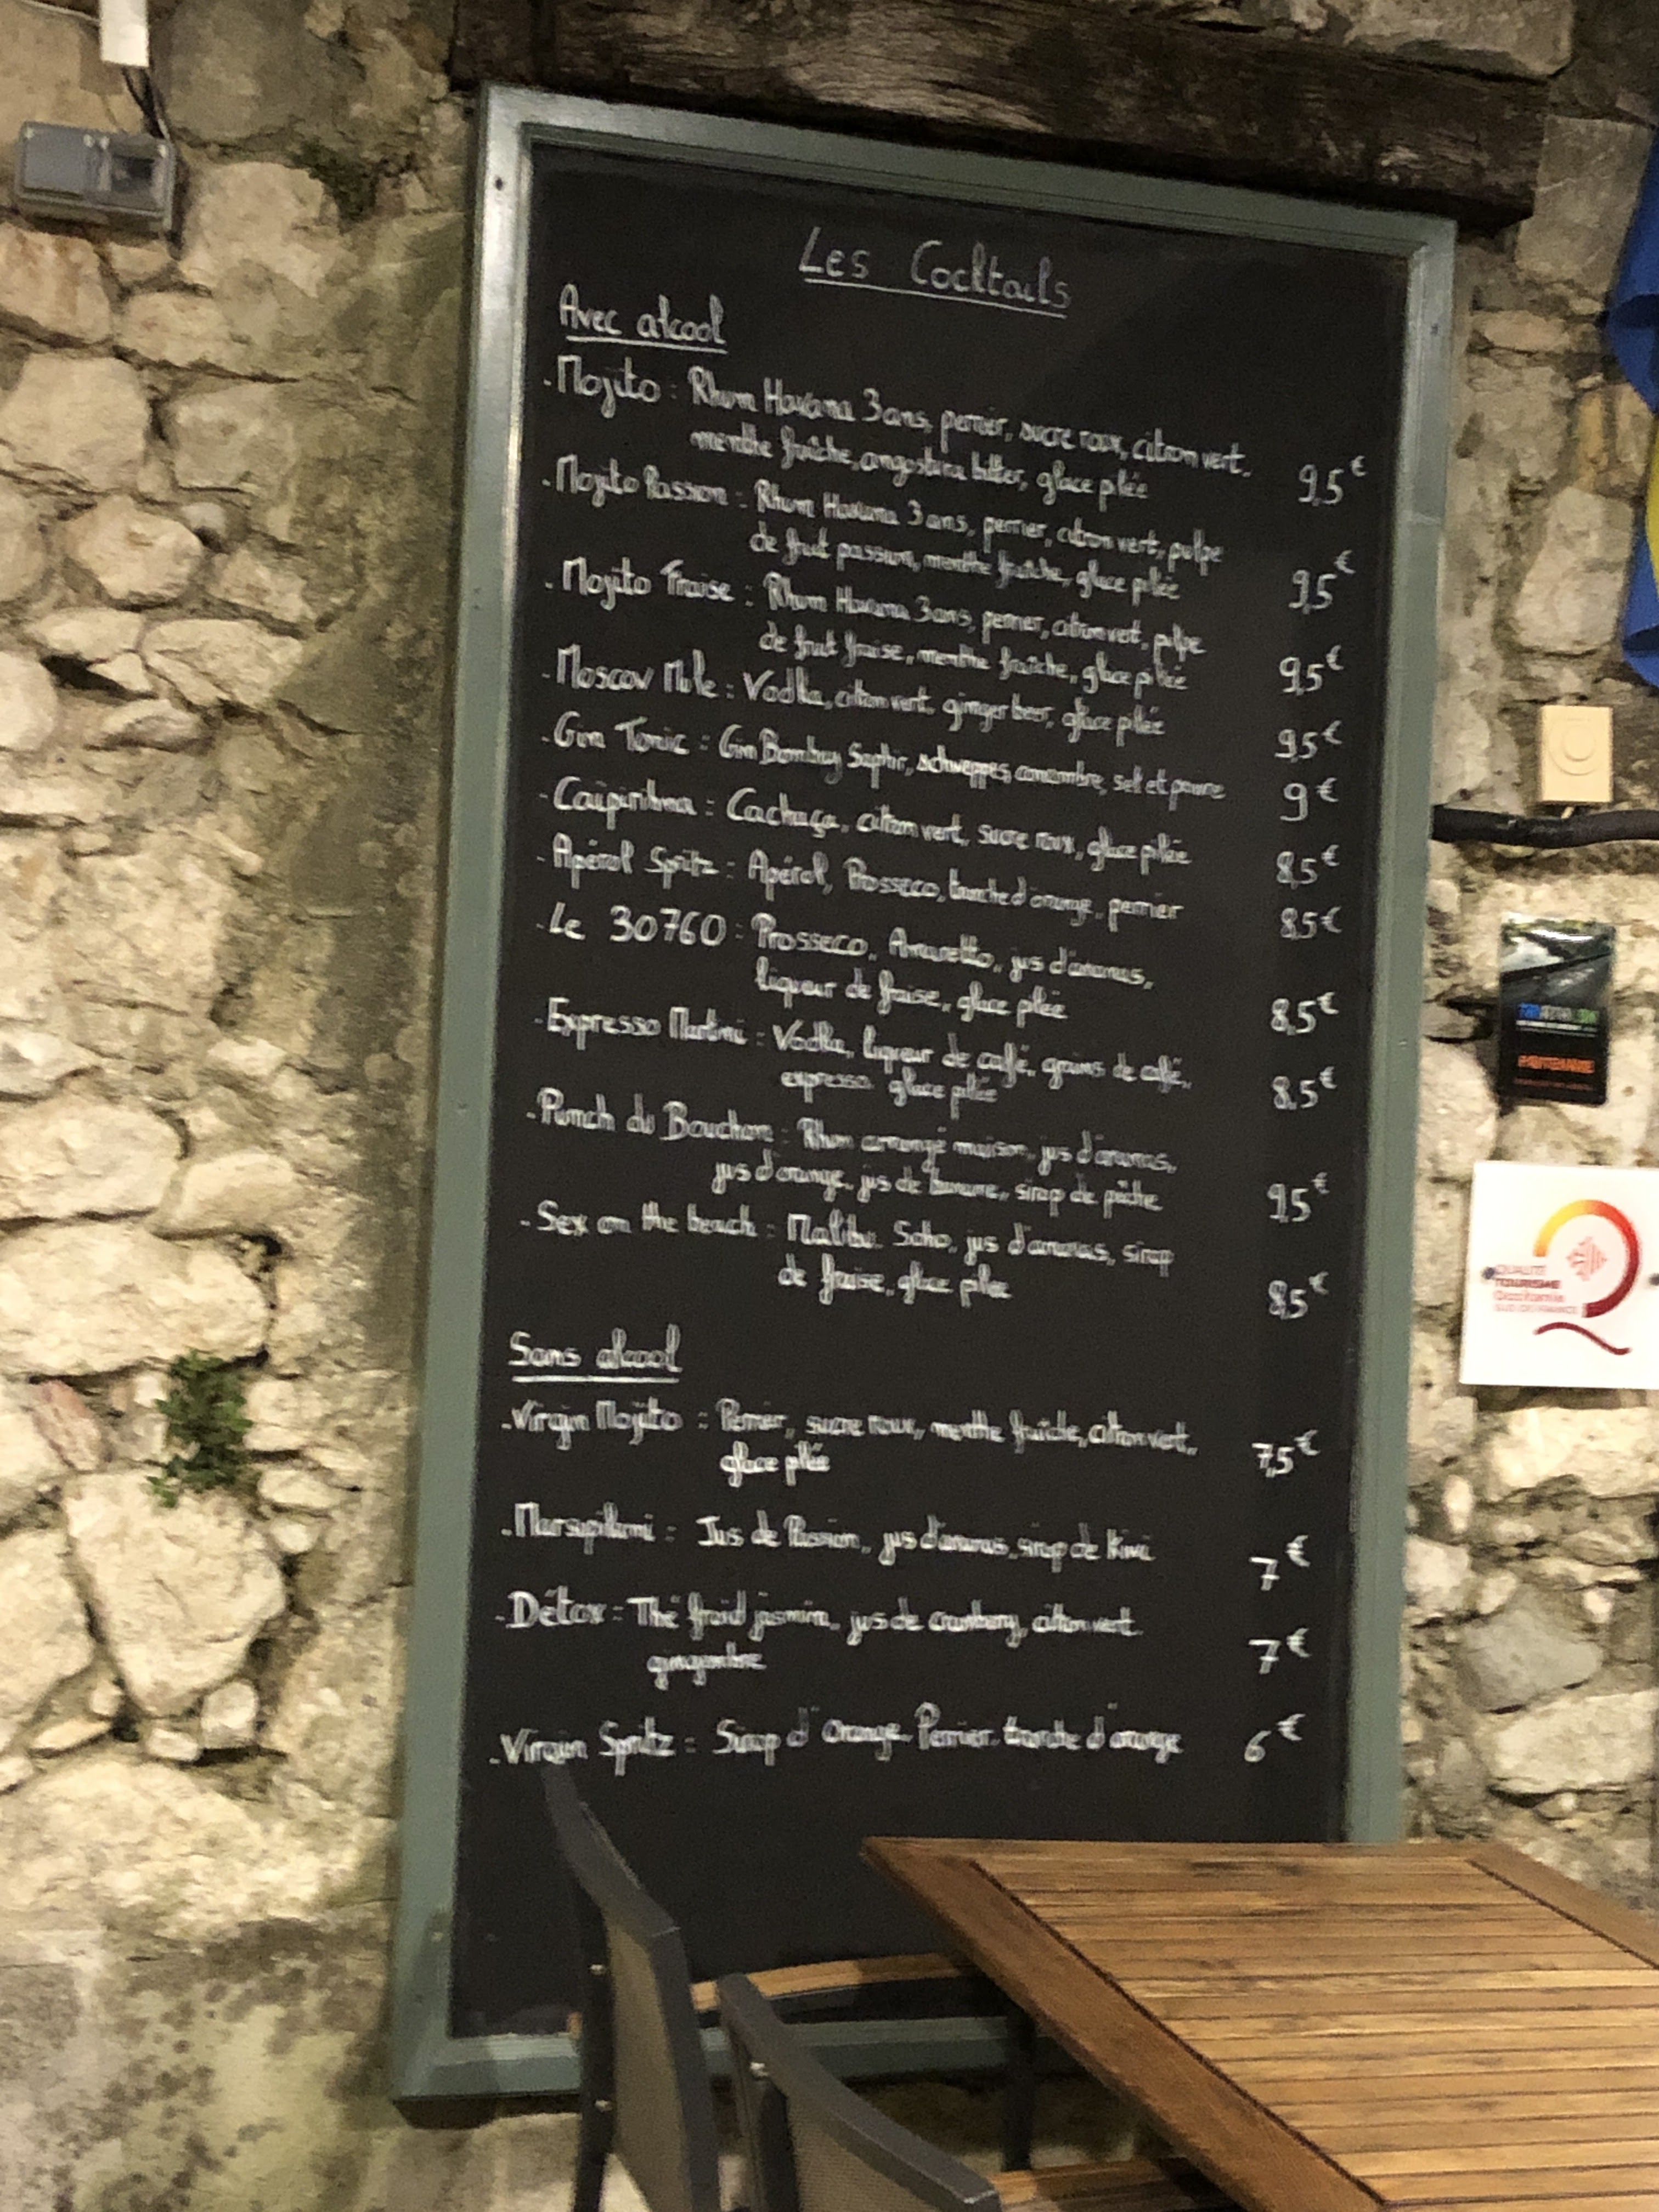 Les Cocktails
Avec alcool
- Mojito : Rhum Havana 3 ans, perrier, sucre roux, citron vert,
menthe fraîche, angostura bitter, glace pilée 9,5€
- Mojito Passion : Rhum Havana 3 ans, perrier, citron vert, pulpe
de fruit passion, menthe fraîche, glace pilée 9,5€
- Mojito Fraise : Rhum Havana 3 ans, perrier, citron vert, pulpe
de fruit fraise, menthe fraîche, glace pilée 9,5€
- Moscow Mule : Vodka, citron vert, ginger beer, glace pilée 9,5€
- Gin Tonic : Gin Bombay Saphir, schweppes, concombre, sel et poivre 9€
- Caipirinha : Cachaça, citron vert, sucre roux, glace pilée 8,5€
- Apérol Spritz : Apérol, Prosseco, tranche d'orange, perrier 8,5€
- Le 30760 : Prosseco, Amaretto, jus d'ananas,
liqueur de fraise, glace pilée 8,5€
- Expresso Martini : Vodka, liqueur de café, grains de café,
expresso, glace pilée 8,5€
- Punch du Bouchon : Rhum arrangé maison, jus d'ananas,
jus d'orange, jus de banane, sirop de pêche 9,5€
- Sex on the beach : Malibu, Soho, jus d'ananas, sirop
de fraise, glace pilée 8,5€
Sans alcool
- Virgin Mojito : Perrier, sucre roux, menthe fraîche, citron vert,
glace pilée 7,5€
- Marsupilami : Jus de Passion, jus d'ananas, sirop de Kiwi 7€
- Détox : Thé froid jasmin, jus de cranberry, citron vert,
gingembre 7€
- Virgin Spritz : Sirop d'Orange, Perrier, tranche d'orange 6€
QUALITÉ
TOURISME
Occitanie
SUD DE FRANCE